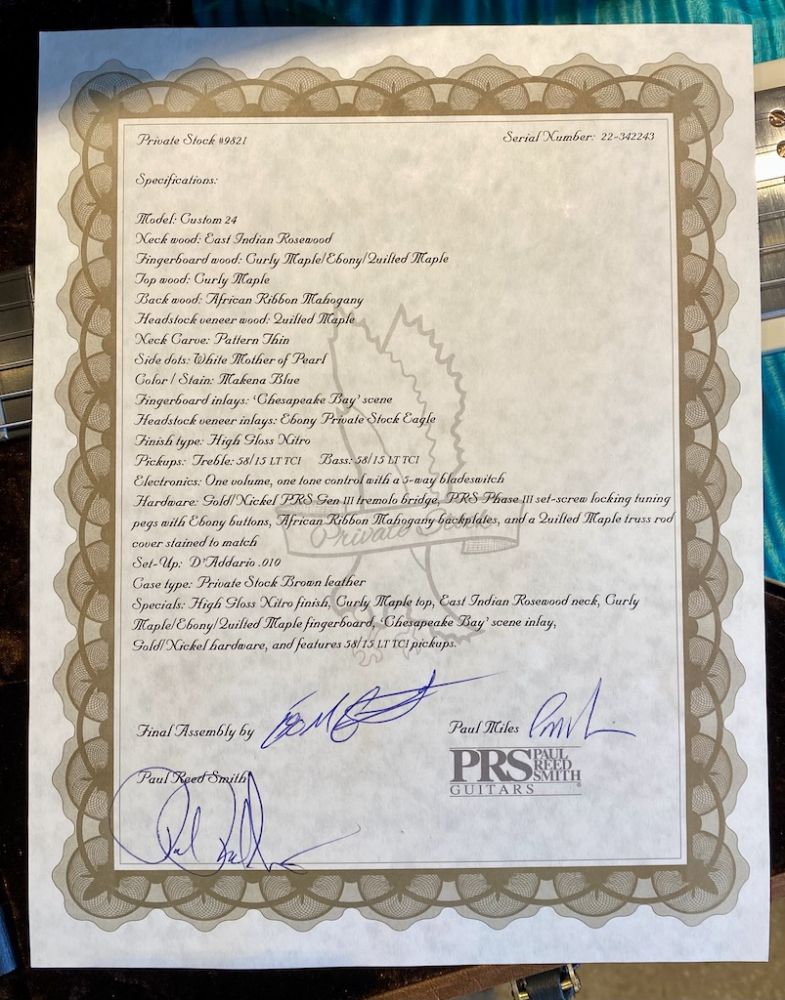 Private Stock #9821
Serial Number: 22-342243
Specifications:
Model: Custom 24
Neck wood: East Indian Rosewood
Fingerboard wood: Curly Maple/Ebony/Quilted Maple
Top wood: Curly Maple
Back wood: African Ribbon Mahogany
Headstock veneer wood: Quilted Maple
Neck Carve: Pattern Thin
Side dots: White Mother of Pearl
Color / Stain: Makena Blue
Fingerboard inlays: 'Chesapeake Bay' scene
Headstock veneer inlays: Ebony Private Stock Eagle
Finish type: High Gloss Nitro
Pickups: Treble: 58/15 LT TCI Bass: 58/15 LT TCI
Electronics: One volume, one tone control with a 5-way bladeswitch
Hardware: Gold/Nickel PRS Gen III tremolo bridge, PRS Phase III set-screw locking tuning
pegs with Ebony buttons, African Ribbon Mahogany backplates, and a Quilted Maple truss rod
cover stained to match
Private Stock
Set-Up: D'Addario .010
Case type: Private Stock Brown leather
Specials: High Gloss Nitro finish, Curly Maple top, East Indian Rosewood neck, Curly
Maple/Ebony/Quilted Maple fingerboard, 'Chesapeake Bay' scene inlay,
Gold/Nickel hardware, and features 58/15 LT TCI pickups.
Final Assembly by
Paul Miles
PRS PAUL REED SMITH
GUITARS
Paul Reed Smith